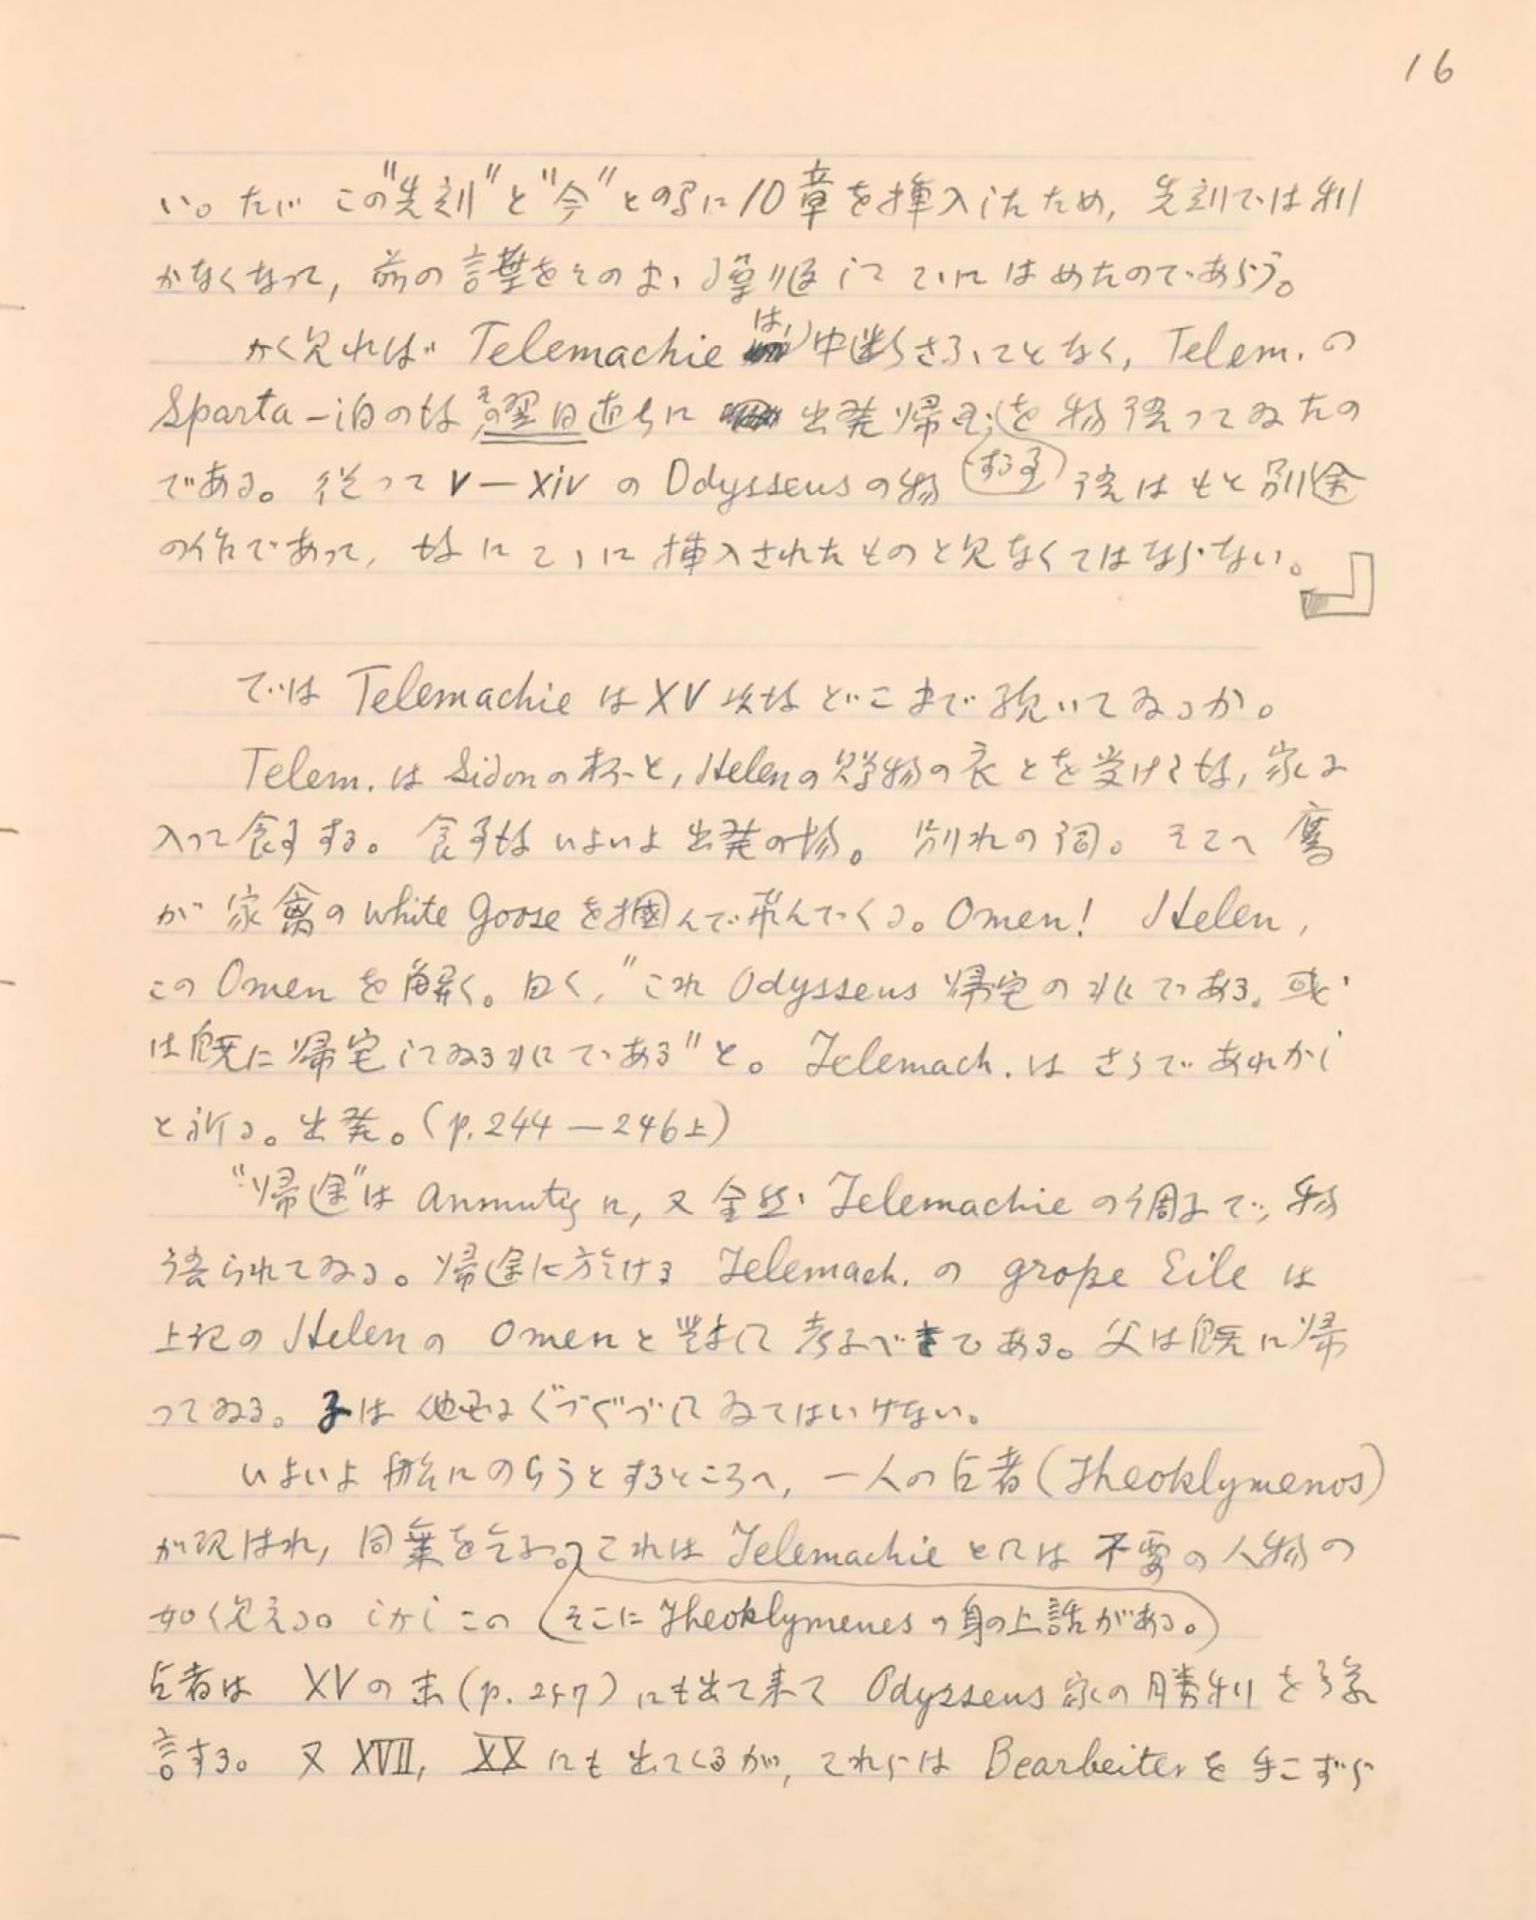 16
い。たゞこの"先刻"と"今"との間に10章を挿入したため, 先刻では利
かなくなって, 前の言葉をそのまゝ繰り返してこゝにはめたのであらう。
かく見れば Telemachie は中断さるゝことなく, Telem. の
Sparta 一泊の後その翌日直ちに出発帰宅するを物語ってゐたの
である。従って V—XIV の Odysseus の物語はもと別途
の作であって, 後にこゝに挿入されたものと見なくてはならない。
では Telemachie は XV 以後どこまで続いてゐるか。
Telem. は Sidon の杯と, Helen の贈物の衣とを受けて後, 家に
入って食事する。食事後いよいよ出発の場。別れの詞。そこへ鷹
が家禽の white goose を掴んで飛んでくる。Omen! Helen,
この Omen を解く。曰く, "これ Odysseus 帰宅の兆である, 或
は既に帰宅してゐる兆である"と。Telemach. はさうであれかし
と祈る。出発。(p.244—246上)
"帰途"は anmutig に, 又全然 Telemachie の調子で, 物
語られてゐる。帰途に於ける Telemach. の große Eile は
上記の Helen の Omen と対して考ふべきである。父は既に帰
ってゐる。子は他国にぐづぐづしてゐてはいけない。
いよいよ船にのらうとするところへ, 一人の占者 (Theoklymenos)
が現はれ, 同乗を乞ふ。これは Telemachie としては不要の人物の
如く見える。しかしこの (そこに Theoklymenes の身の上話がある。)
占者は XV の末 (p.257) にも出て来て Odysseus 家の勝利を予
言する。又 XVII, XX にも出てくるが, これらは Bearbeiter を手こずら